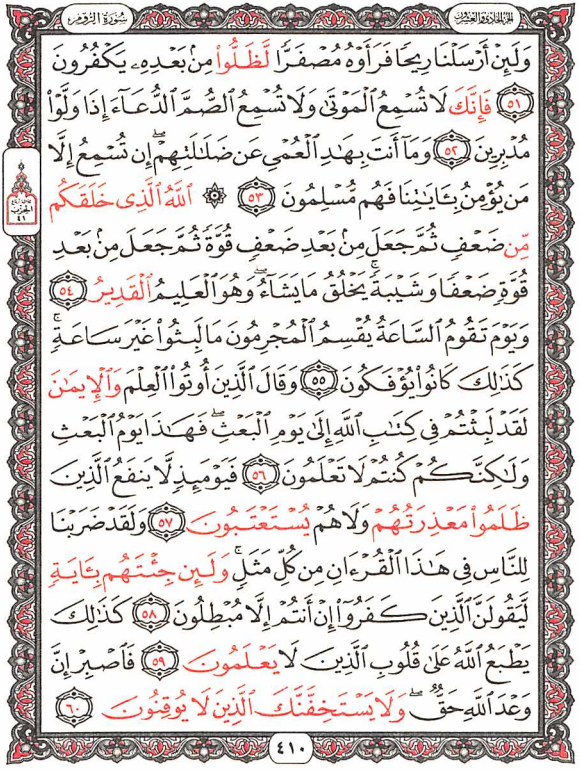 الجزء الحادي والعشرون
سُورَةُ الرُّومِ
وَلَئِنْ أَرْسَلْنَا رِيحًا فَرَأَوْهُ مُصْفَرًّا لَّظَلُّوا۟ مِنۢ بَعْدِهِۦ يَكْفُرُونَ
۝٥١ فَإِنَّكَ لَا تُسْمِعُ ٱلْمَوْتَىٰ وَلَا تُسْمِعُ ٱلصُّمَّ ٱلدُّعَآءَ إِذَا وَلَّوْا۟
مُدْبِرِينَ ۝٥٢ وَمَآ أَنتَ بِهَٰدِ ٱلْعُمْىِ عَن ضَلَٰلَتِهِمْ ۖ إِن تُسْمِعُ إِلَّا
مَن يُؤْمِنُ بِـَٔايَٰتِنَا فَهُم مُّسْلِمُونَ ۝٥٣ ۞ ٱللَّهُ ٱلَّذِى خَلَقَكُم
مِّن ضَعْفٍ ثُمَّ جَعَلَ مِنۢ بَعْدِ ضَعْفٍ قُوَّةً ثُمَّ جَعَلَ مِنۢ بَعْدِ
قُوَّةٍ ضَعْفًا وَشَيْبَةً ۚ يَخْلُقُ مَا يَشَآءُ ۖ وَهُوَ ٱلْعَلِيمُ ٱلْقَدِيرُ ۝٥٤
وَيَوْمَ تَقُومُ ٱلسَّاعَةُ يُقْسِمُ ٱلْمُجْرِمُونَ مَا لَبِثُوا۟ غَيْرَ سَاعَةٍ ۚ
كَذَٰلِكَ كَانُوا۟ يُؤْفَكُونَ ۝٥٥ وَقَالَ ٱلَّذِينَ أُوتُوا۟ ٱلْعِلْمَ وَٱلْإِيمَٰنَ
لَقَدْ لَبِثْتُمْ فِى كِتَٰبِ ٱللَّهِ إِلَىٰ يَوْمِ ٱلْبَعْثِ ۖ فَهَٰذَا يَوْمُ ٱلْبَعْثِ
وَلَٰكِنَّكُمْ كُنتُمْ لَا تَعْلَمُونَ ۝٥٦ فَيَوْمَئِذٍ لَّا يَنفَعُ ٱلَّذِينَ
ظَلَمُوا۟ مَعْذِرَتُهُمْ وَلَا هُمْ يُسْتَعْتَبُونَ ۝٥٧ وَلَقَدْ ضَرَبْنَا
لِلنَّاسِ فِى هَٰذَا ٱلْقُرْءَانِ مِن كُلِّ مَثَلٍ ۚ وَلَئِن جِئْتَهُم بِـَٔايَةٍ
لَّيَقُولَنَّ ٱلَّذِينَ كَفَرُوٓا۟ إِنْ أَنتُمْ إِلَّا مُبْطِلُونَ ۝٥٨ كَذَٰلِكَ
يَطْبَعُ ٱللَّهُ عَلَىٰ قُلُوبِ ٱلَّذِينَ لَا يَعْلَمُونَ ۝٥٩ فَٱصْبِرْ إِنَّ
وَعْدَ ٱللَّهِ حَقٌّ ۖ وَلَا يَسْتَخِفَّنَّكَ ٱلَّذِينَ لَا يُوقِنُونَ ۝٦٠
الحزب
٤١
٤١٠